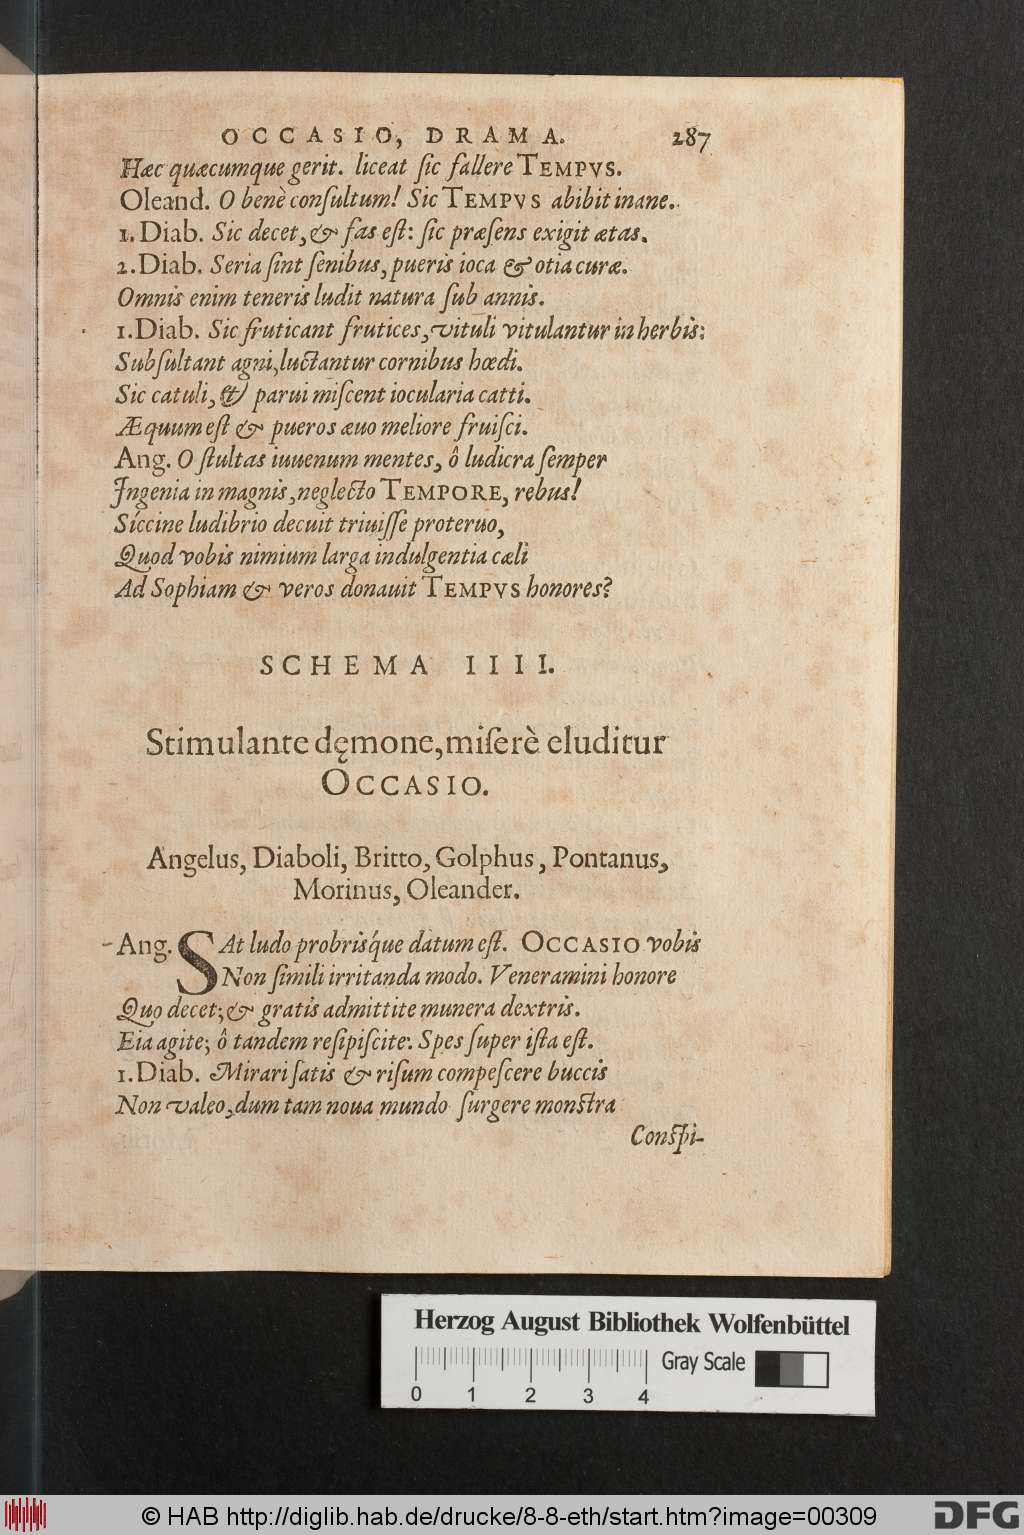 OCCASIO, DRAMA. 287
Hæc quæcumque gerit. liceat sic fallere TEMPVS.
Oleand. O benè consultum! Sic TEMPVS abibit inane.
1. Diab. Sic decet, & fas est: sic præsens exigit ætas.
2. Diab. Seria sint senibus, pueris ioca & otia curæ.
Omnis enim teneris ludit natura sub annis.
1. Diab. Sic fruticant frutices, vituli vitulantur in herbis:
Subsultant agni, luctantur cornibus hœdi.
Sic catuli, & parui miscent iocularia catti.
Æquum est & pueros æuo meliore fruisci.
Ang. O stultas iuuenum mentes, ô ludicra semper
Ingenia in magnis, neglecto TEMPORE, rebus!
Síccine ludibrio decuit triuisse proteruo,
Quod vobis nimium larga indulgentia cæli
Ad Sophiam & veros donauit TEMPVS honores?
SCHEMA IIII.
Stimulante dęmone, miserè eluditur
OCCASIO.
Angelus, Diaboli, Britto, Golphus, Pontanus,
Morinus, Oleander.
Ang. SAt ludo probrisq́ue datum est. OCCASIO vobis
Non simili irritanda modo. Veneramini honore
Quo decet; & gratis admittite munera dextris.
Eia agite; ô tandem resipiscite. Spes super ista est.
1. Diab. Mirari satis & risum compescere buccis
Non valeo, dum tam noua mundo surgere monstra
Conspi-
Herzog August Bibliothek Wolfenbüttel
Gray Scale
0 1 2 3 4
© HAB http://diglib.hab.de/drucke/8-8-eth/start.htm?image=00309
DFG